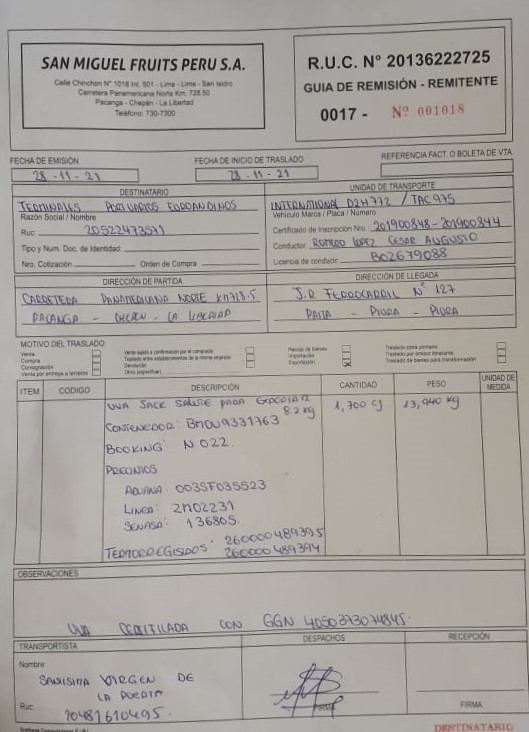 SAN MIGUEL FRUITS PERU S.A.
Calle Chinchon N° 1018 Int. 501 - Lima - Lima - San Isidro
Carretera Panamericana Norte Km. 728.50
Pacanga - Chepén - La Libertad
Teléfono: 730-7300
R.U.C. N° 20136222725
GUIA DE REMISIÓN - REMITENTE
0017 - Nº 001018
FECHA DE EMISIÓN
28-11-21
FECHA DE INICIO DE TRASLADO
28-11-21
REFERENCIA FACT. O BOLETA DE VTA.
DESTINATARIO
TERMINALES PORTUARIOS EUROANDINOS
Razón Social / Nombre
Ruc: 20522473571
Tipo y Num. Doc. de Identidad:
Nro. Cotización: Orden de Compra:
UNIDAD DE TRANSPORTE
INTERNATIONAL D2H772 / TAC975
Vehículo Marca / Placa / Número
Certificado de Inscripción Nro.: 201900848-201900844
Conductor ROMERO LOPEZ CESAR AUGUSTO
Licencia de conducir B02679088
DIRECCIÓN DE PARTIDA
CARRETERA PANAMERICANA NORTE KM728.5
PACANGA - CHEPEN - LA LIBERTAD
DIRECCIÓN DE LLEGADA
J.R FERROCARRIL N° 127
PAITA - PIURA - PIURA
MOTIVO DEL TRASLADO:
Venta
Compra
Consignación
Venta por entrega a terceros
Venta sujeta a confirmación por el comprador
Traslado entre establecimientos de la misma empresa
Devolución
Otros (especificar)
Recojo de bienes
Importación
Exportación X
Traslado zona primaria
Traslado por emisor itinerante
Traslado de bienes para transformación
ITEM CODIGO DESCRIPCIÓN CANTIDAD PESO UNIDAD DE MEDIDA
UVA JACK SALUTE PARA EXPORTAR 8.2 kg 1,700 CJ 13,940 kg
CONTENEDOR: BMOU9331763
BOOKING: N 022.
PRECINTOS
ADUANA: 003SF035523
LINEA: 2M02231
SENASA: 136805.
TERMOREGISTROS: 260000489395
260000489394
OBSERVACIONES
UVA CERTIFICADA CON GGN 4050373074845.
TRANSPORTISTA
Nombre:
SANTISIMA VIRGEN DE
LA PUERTA
Ruc: 20481610495.
DESPACHOS
FIRMA
RECEPCIÓN
FIRMA
DESTINATARIO